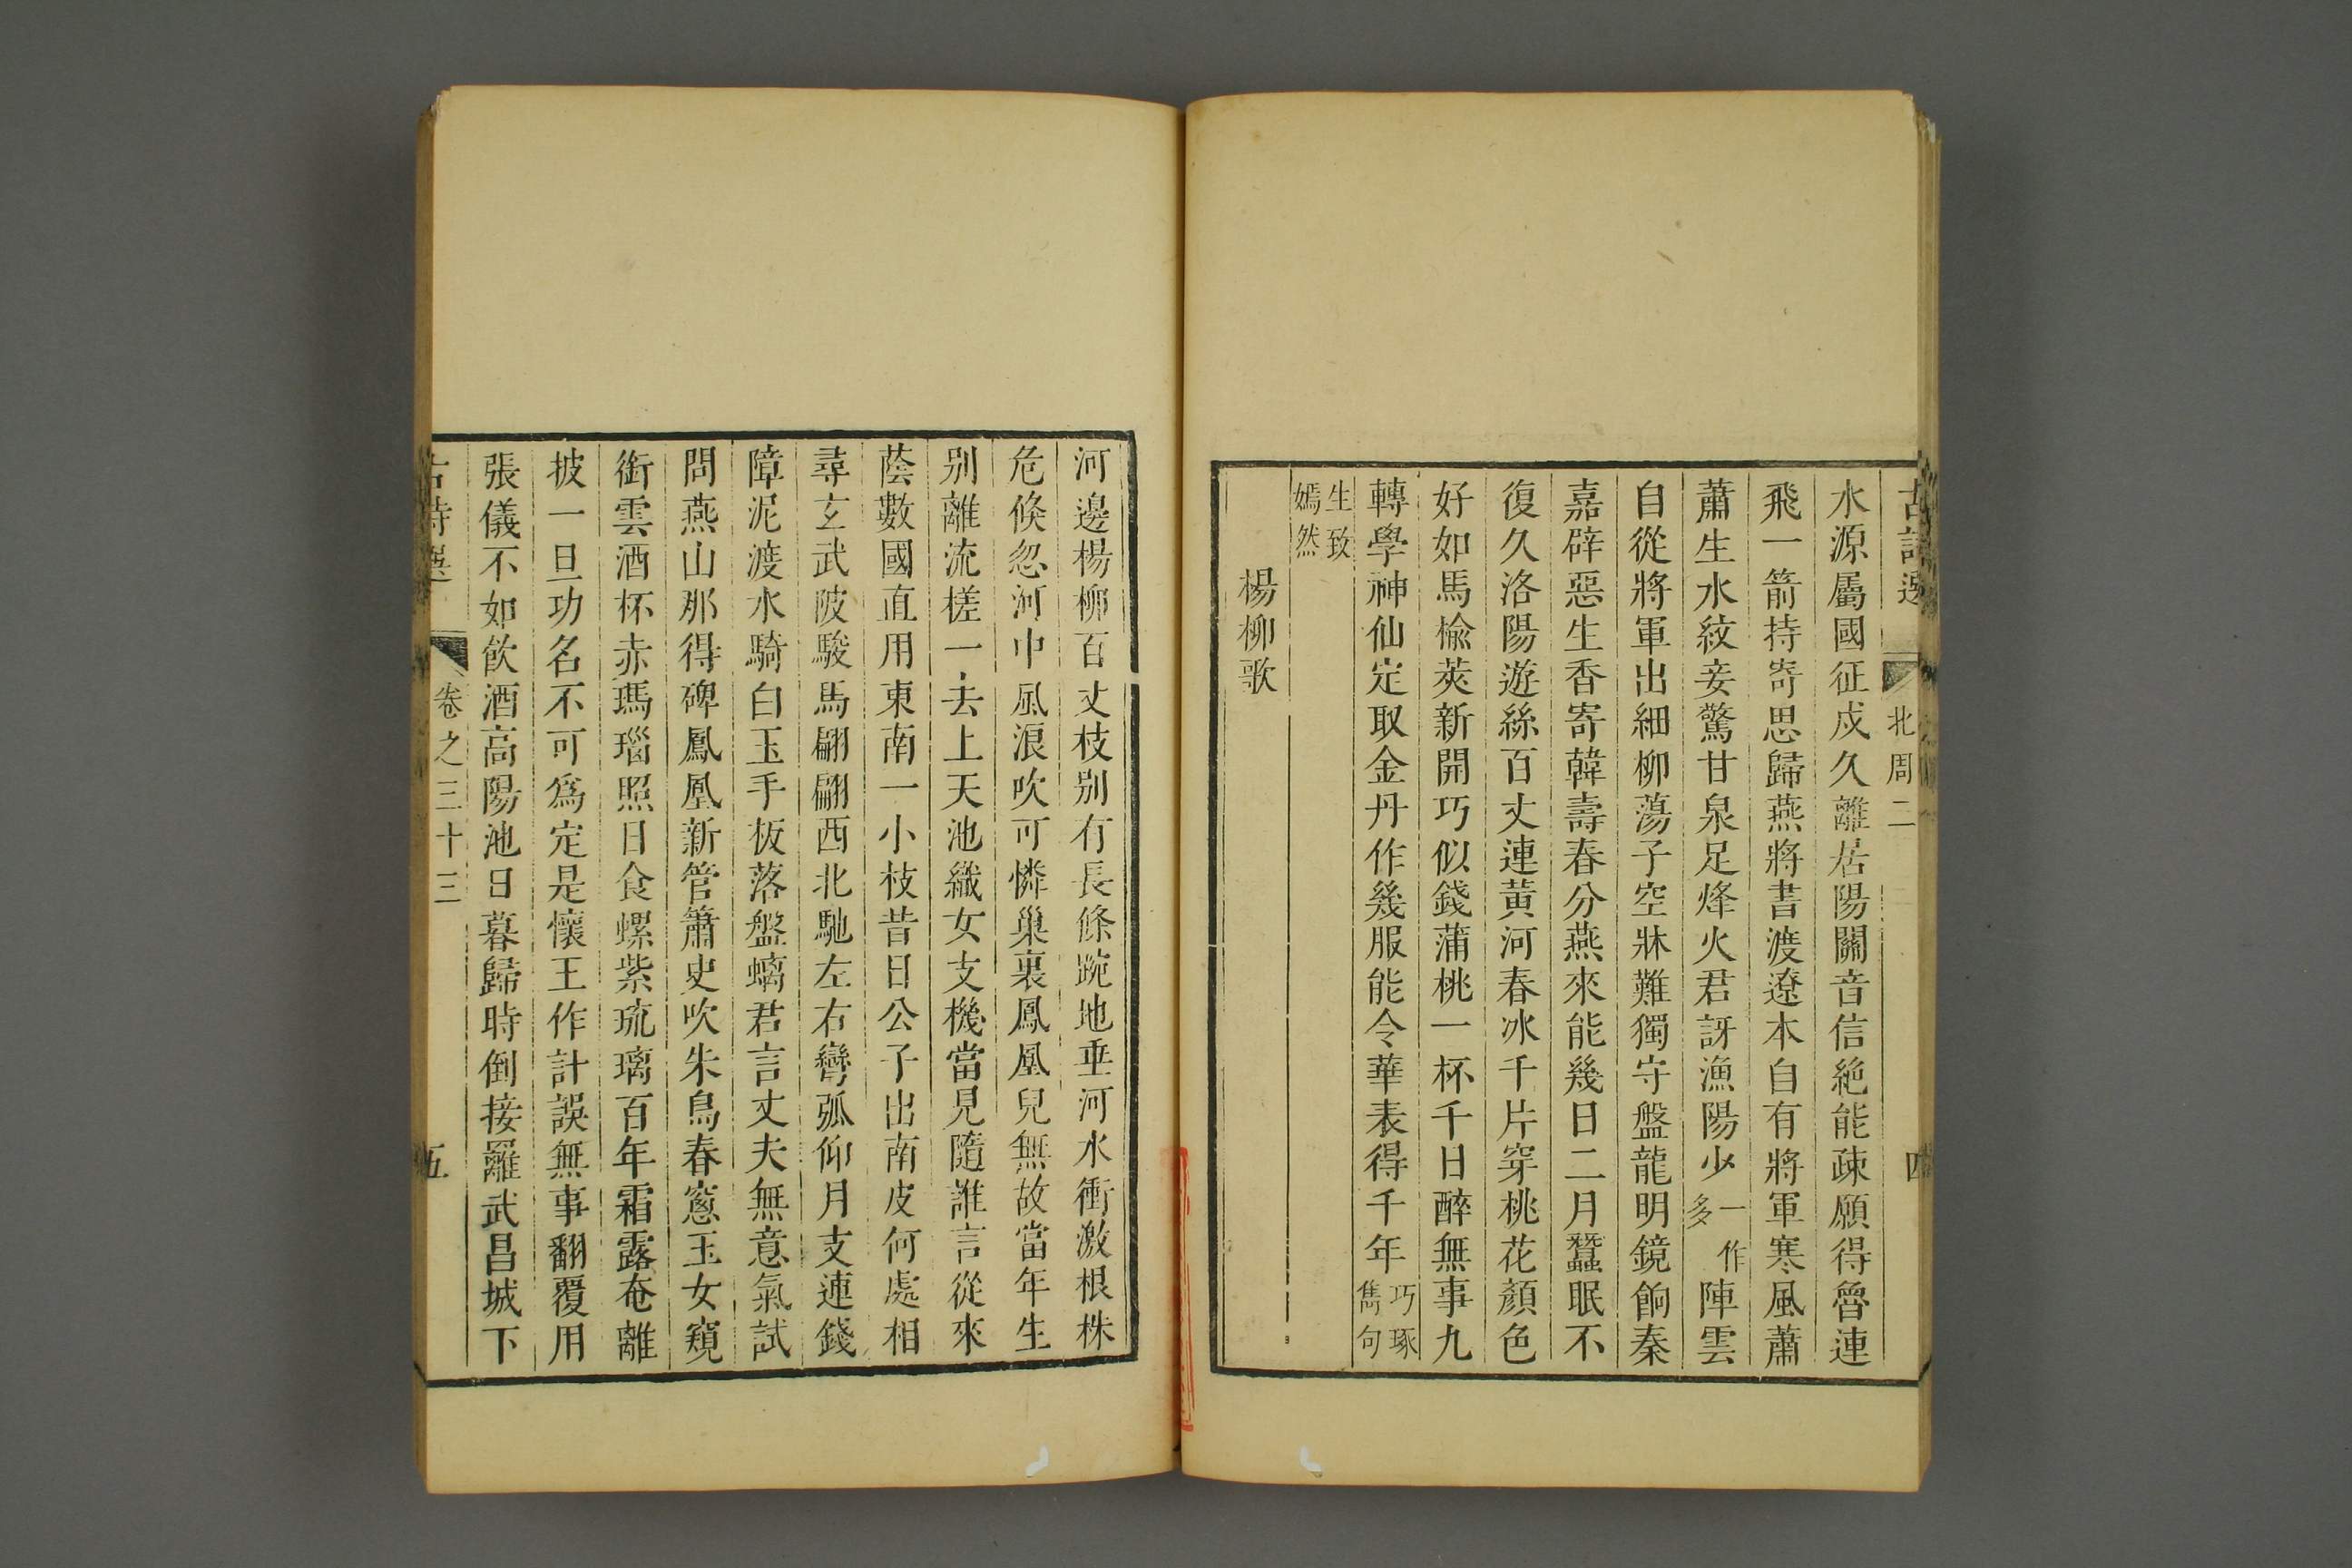 古詩選 北周二 四
水源屬國征戍久離居陽關音信絶能疎願得魯連
飛一箭持寄思歸燕將書渡遼本自有將軍寒風蕭
蕭生水紋妾驚甘泉足烽火君訝漁陽少一作多陣雲
自從將軍出細柳蕩子空牀難獨守盤龍明鏡餉秦
嘉辟惡生香寄韓壽春分燕來能幾日二月蠶眠不
復久洛陽遊絲百丈連黃河春冰千片穿桃花顏色
好如馬榆莢新開巧似錢蒲桃一杯千日醉無事九
轉學神仙定取金丹作幾服能令華表得千年巧琢雋句
生致嫣然
楊柳歌
河邊楊柳百丈枝别有長條踠地垂河水衝激根株
危倐忽河中風浪吹可憐巢裏鳳凰兒無故當年生
别離流槎一去上天池織女支機當見隨誰言從來
蔭數國直用東南一小枝昔日公子出南皮何處相
尋玄武陂駿馬翩翩西北馳左右彎弧仰月支連錢
障泥渡水騎白玉手板落盤螭君言丈夫無意氣試
問燕山那得碑鳳凰新管簫史吹朱鳥春窻玉女窺
銜雲酒杯赤瑪瑙照日食螺紫琉璃百年霜露奄離
披一旦功名不可爲定是懷王作計誤無事翻覆用
張儀不如飲酒高陽池日暮歸時倒接䍦武昌城下
古詩選 卷之三十三 五